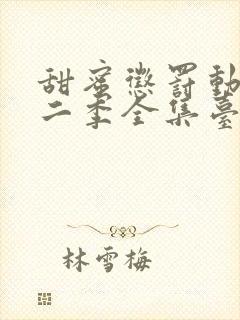 甜蜜懲罰動
二季全集臺
林雪梅